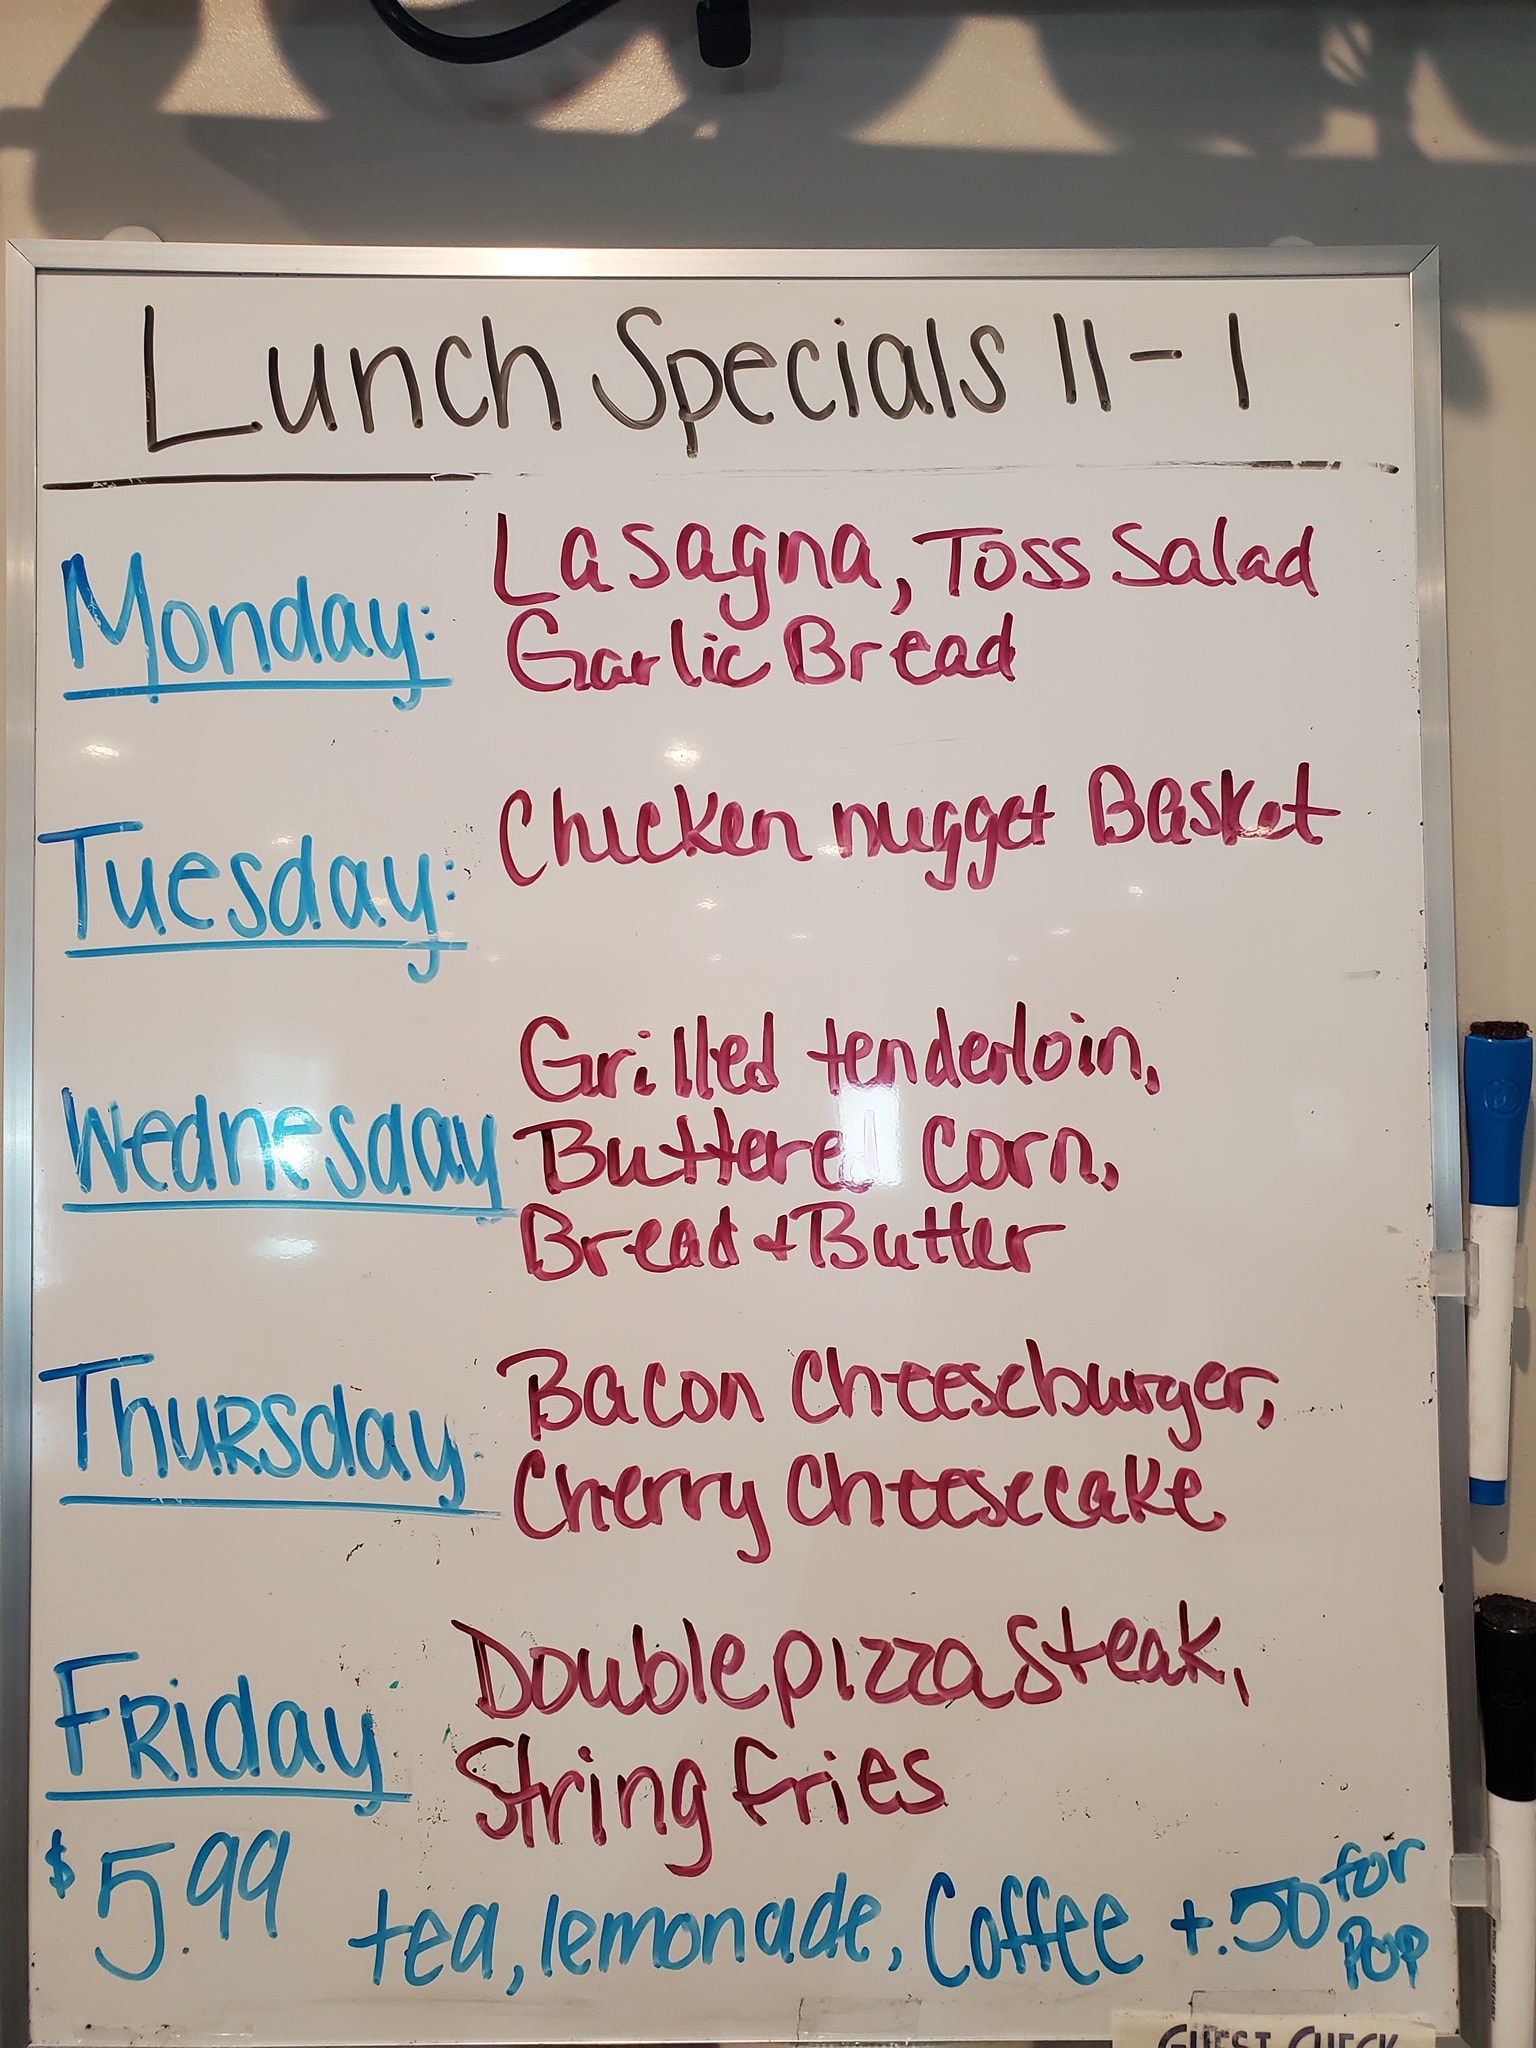 Lunch Specials 11-1
Monday: Lasagna, Toss Salad
Garlic Bread
Tuesday: Chicken nugget Basket
Wednesday Grilled tenderloin,
Buttered Corn,
Bread + Butter
Thursday: Bacon Cheeseburger,
Cherry Cheesecake
Friday: Double pizza Steak,
String Fries
$5.99 tea, lemonade, Coffee +.50 for
Pop
GUEST CHECK